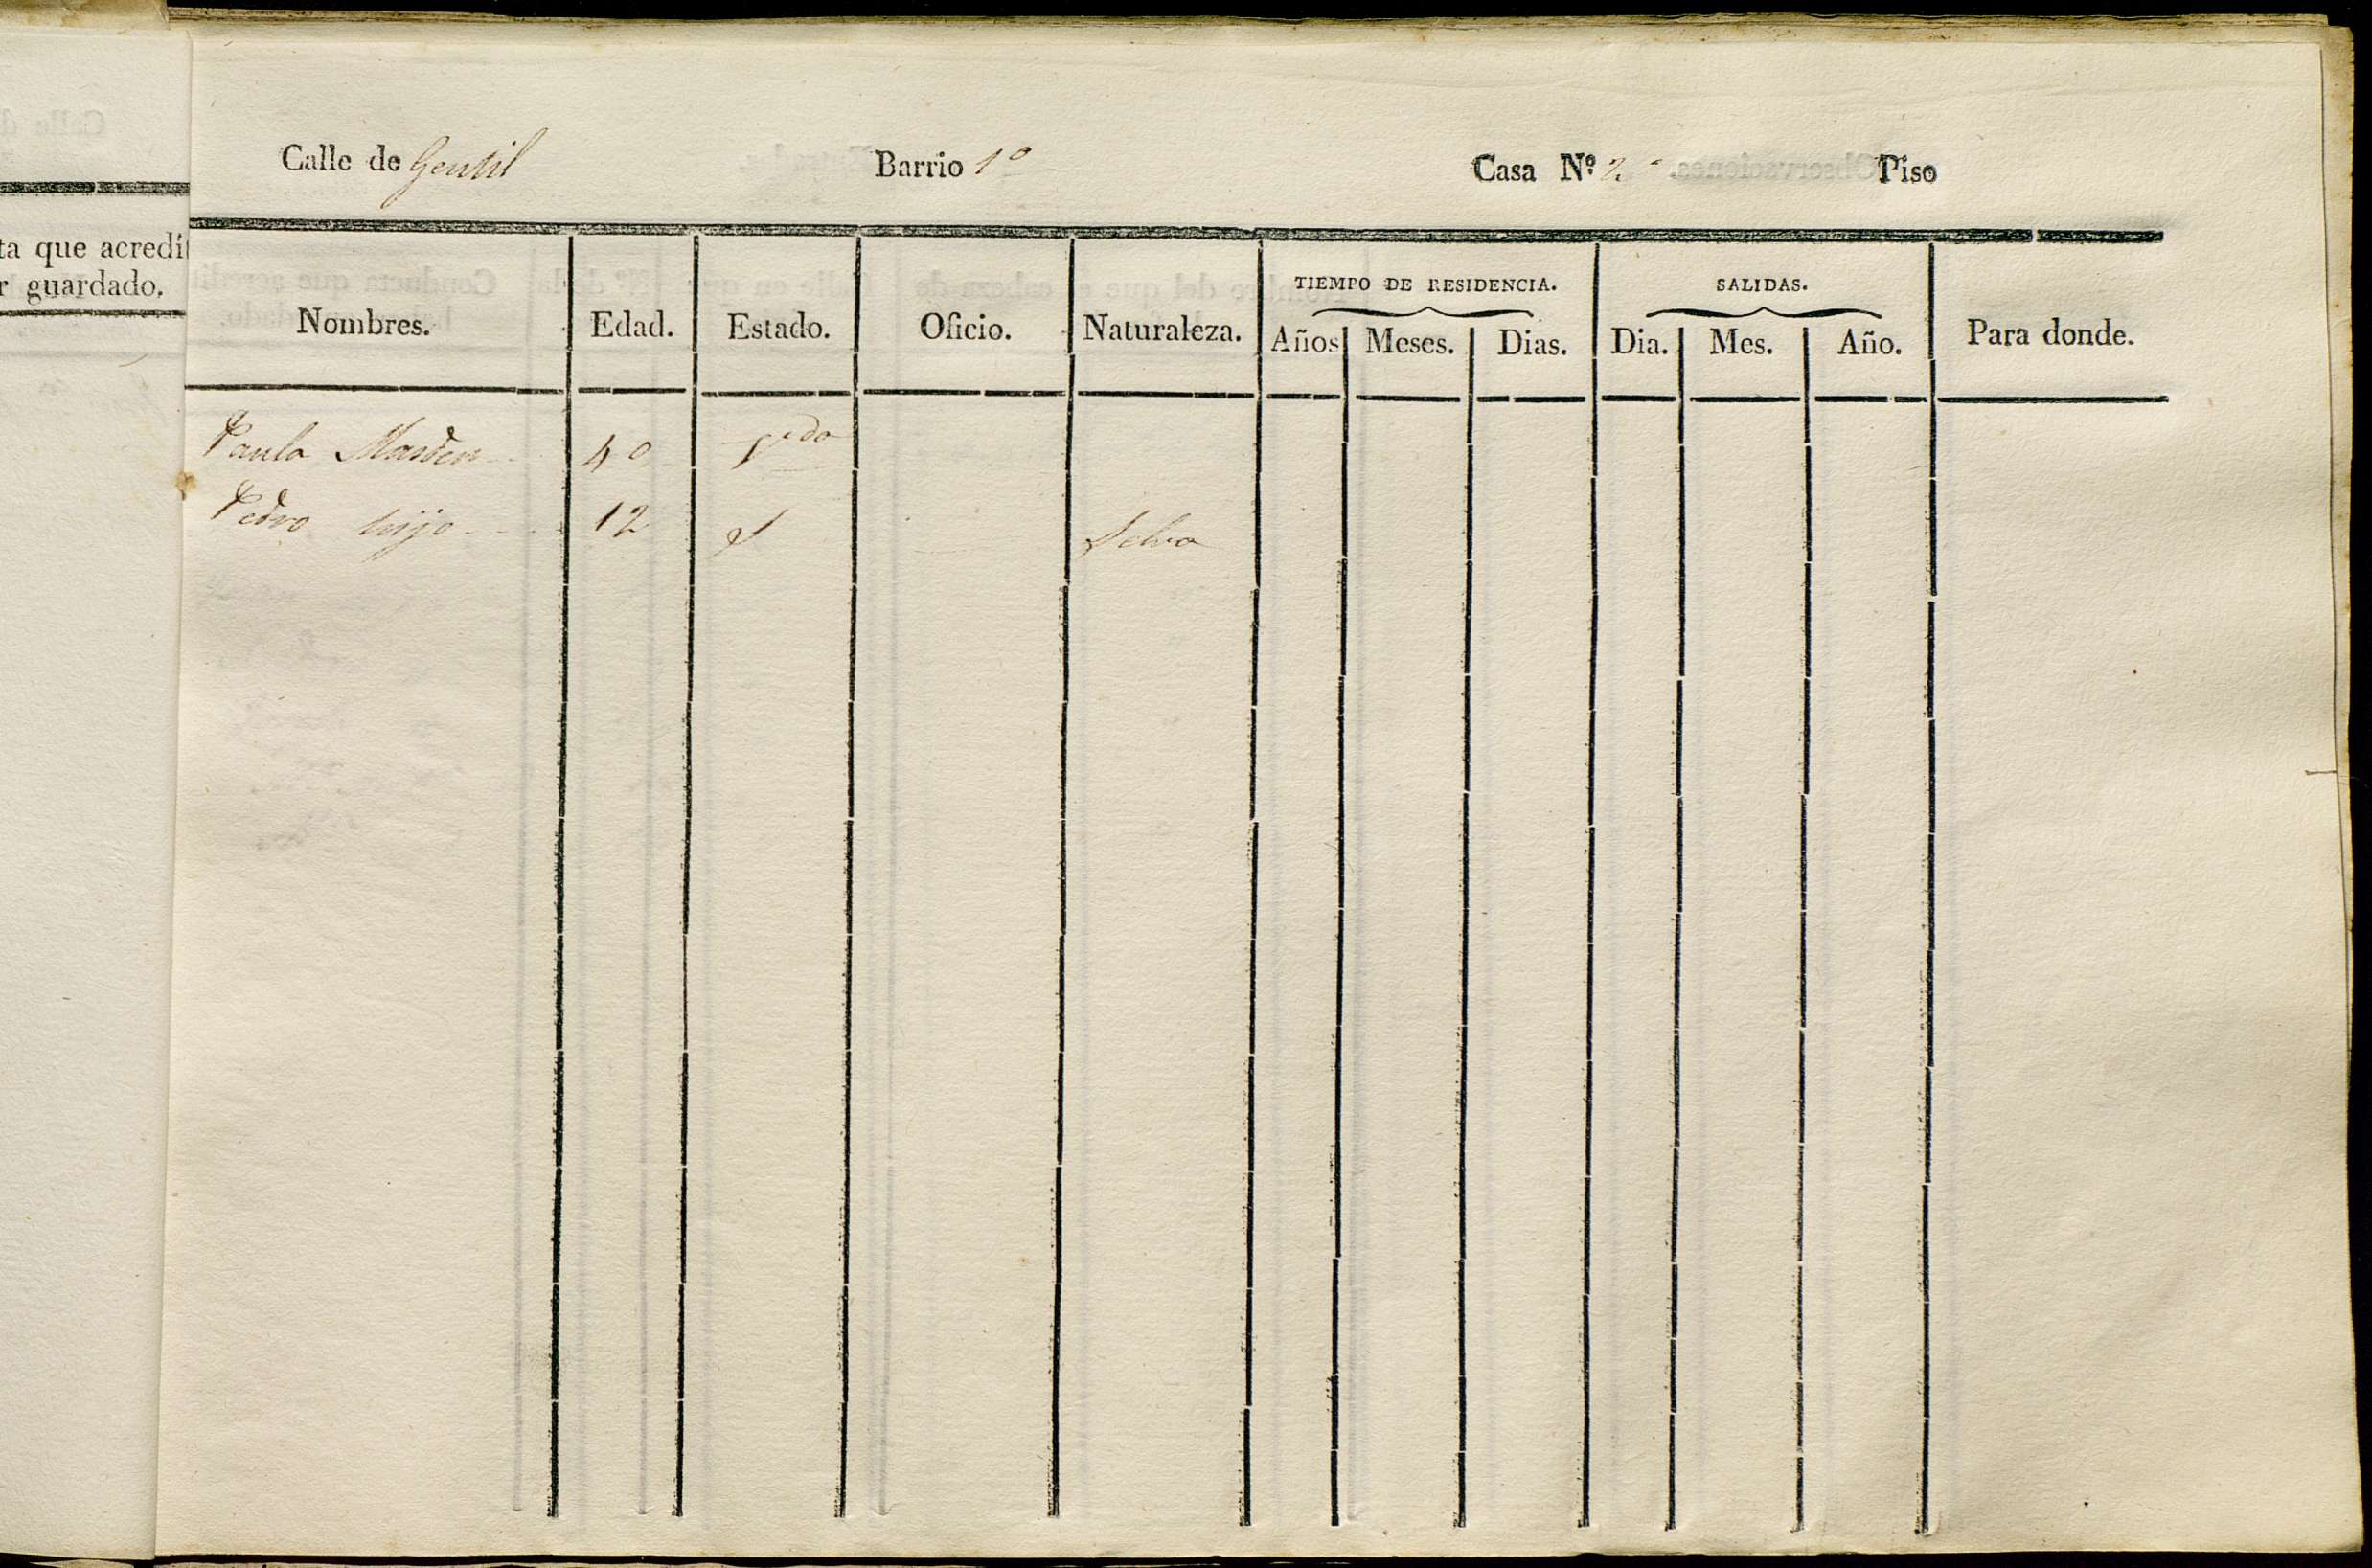 ta que acredit
r guardado.
Calle de Gentil Barrio 1º Casa Nº 2 Piso
Nombres. Edad. Estado. Oficio. Naturaleza. TIEMPO DE RESIDENCIA. Años Meses. Dias. SALIDAS. Dia. Mes. Año. Para donde.
Paula 40
Pedro hijo 12 S Selva